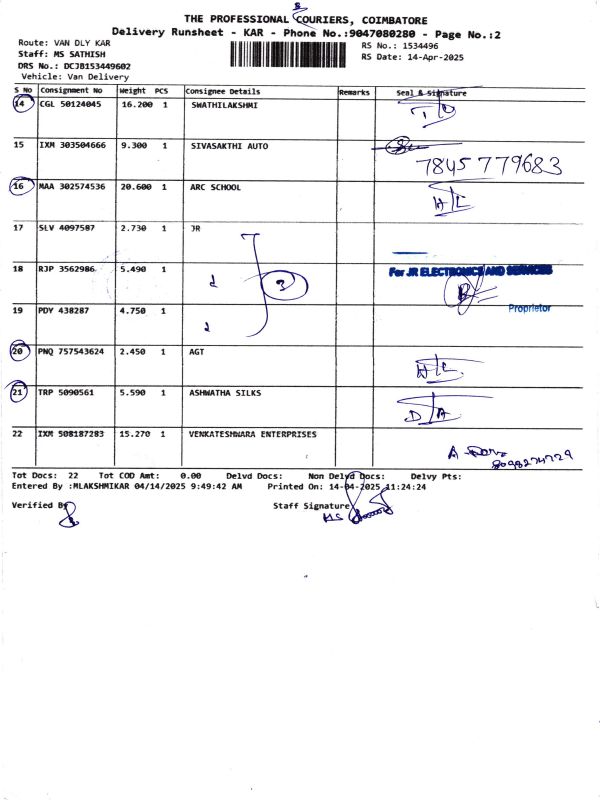 THE PROFESSIONAL COURIERS, COIMBATORE
Delivery Runsheet - KAR - Phone No.:9047080280 - Page No.:2
Route: VAN DLY KAR
Staff: MS SATHISH
DRS No.: DCJB153449602
Vehicle: Van Delivery
RS No.: 1534496
RS Date: 14-Apr-2025
S No Consignment No Weight PCS Consignee Details Remarks Seal & Signature
14 CGL 50124045 16.200 1 SWATHILAKSHMI
15 IXM 303504666 9.300 1 SIVASAKTHI AUTO
7845779683
16 MAA 302574536 20.600 1 ARC SCHOOL
17 SLV 4097587 2.730 1 JR
18 RJP 3562986 5.490 1 3
For JR ELECTRONICS AND SERVICES
Proprietor
19 PDY 438287 4.750 1
20 PNQ 757543624 2.450 1 AGT
21 TRP 5090561 5.590 1 ASHWATHA SILKS
22 IXM 508187283 15.270 1 VENKATESHWARA ENTERPRISES
Tot Docs: 22 Tot COD Amt: 0.00 Delvd Docs: Non Delvd Docs: Delvy Pts:
Entered By :MLAKSHMIKAR 04/14/2025 9:49:42 AM Printed On: 14-04-2025 11:24:24
Verified By Staff Signature
MS